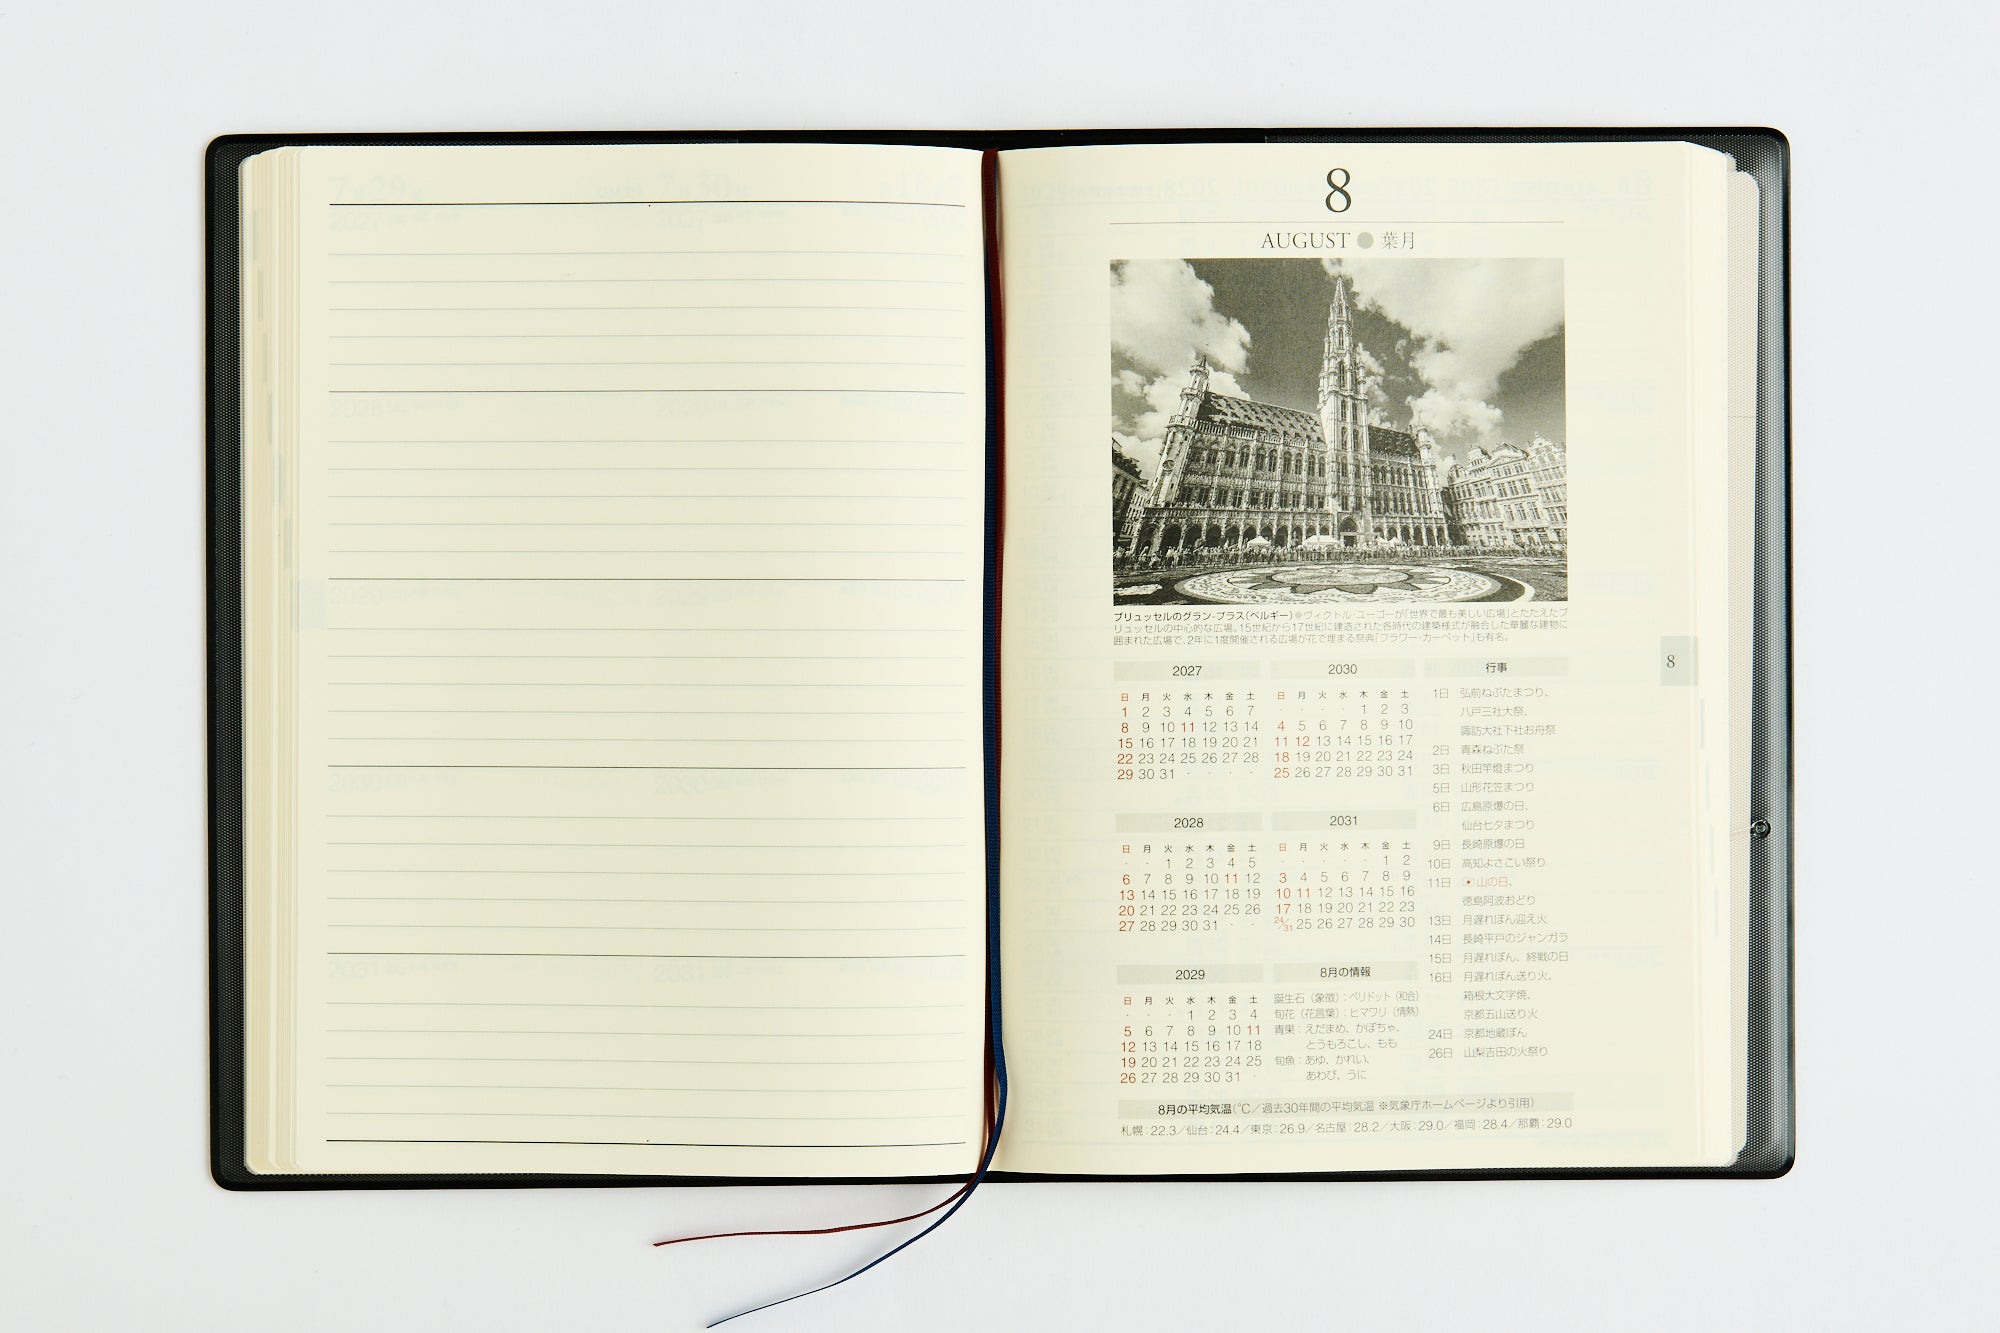 8
AUGUST ● 葉月
ブリュッセルのグラン-プラス(ベルギー)◆ヴィクトル・ユーゴーが「世界で最も美しい広場」とたたえたブ
リュッセルの中心的な広場。15世紀から17世紀に建造された各時代の建築様式が融合した華麗な建物に
囲まれた広場で、2年に1度開催される広場が花で埋まる祭典「フラワー・カーペット」も有名。
2027
日 月 火 水 木 金 土
1 2 3 4 5 6 7
8 9 10 11 12 13 14
15 16 17 18 19 20 21
22 23 24 25 26 27 28
29 30 31 · · · ·
2028
日 月 火 水 木 金 土
· · 1 2 3 4 5
6 7 8 9 10 11 12
13 14 15 16 17 18 19
20 21 22 23 24 25 26
27 28 29 30 31 · ·
2029
日 月 火 水 木 金 土
· · · 1 2 3 4
5 6 7 8 9 10 11
12 13 14 15 16 17 18
19 20 21 22 23 24 25
26 27 28 29 30 31 ·
2030
日 月 火 水 木 金 土
· · · · 1 2 3
4 5 6 7 8 9 10
11 12 13 14 15 16 17
18 19 20 21 22 23 24
25 26 27 28 29 30 31
2031
日 月 火 水 木 金 土
· · · · · 1 2
3 4 5 6 7 8 9
10 11 12 13 14 15 16
17 18 19 20 21 22 23
24/31 25 26 27 28 29 30
8月の情報
誕生石(象徴):ペリドット(和合)
旬花(花言葉):ヒマワリ(情熱)
青果:えだまめ、かぼちゃ、
とうもろこし、もも
旬魚:あゆ、かれい、
あわび、うに
行事
1日 弘前ねぷたまつり、
八戸三社大祭、
諏訪大社下社お舟祭
2日 青森ねぶた祭
3日 秋田竿燈まつり
5日 山形花笠まつり
6日 広島原爆の日、
仙台七夕まつり
9日 長崎原爆の日
10日 高知よさこい祭り
11日 山の日、
徳島阿波おどり
13日 月遅れぼん迎え火
14日 長崎平戸のジャンガラ
15日 月遅れぼん、終戦の日
16日 月遅れぼん送り火、
箱根大文字焼、
京都五山送り火
24日 京都地蔵ぼん
26日 山梨吉田の火祭り
8月の平均気温(℃/過去30年間の平均気温 ※気象庁ホームページより引用)
札幌:22.3/仙台:24.4/東京:26.9/名古屋:28.2/大阪:29.0/福岡:28.4/那覇:29.0
8